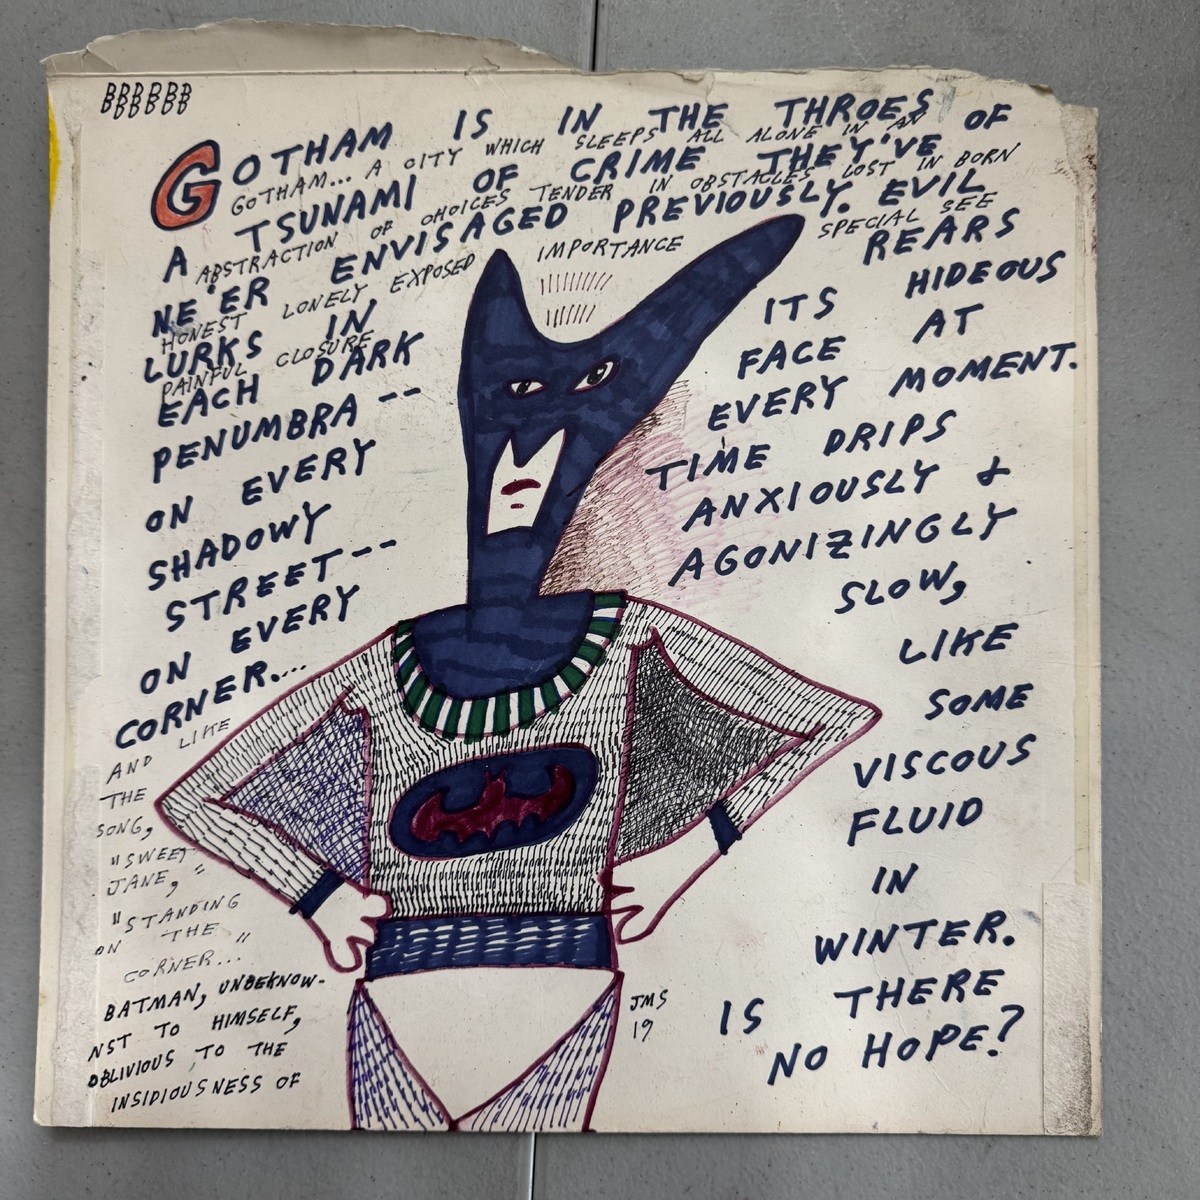 BBBBBB
BBBBBB
GOTHAM IS IN THE THROES OF
GOTHAM... A CITY WHICH SLEEPS ALL ALONE IN AN
A TSUNAMI OF CRIME THEY'VE
ABSTRACTION OF CHOICES TENDER IN OBSTACLES LOST IN BORN
NE'ER ENVISAGED PREVIOUSLY. EVIL
HONEST LONELY EXPOSED IMPORTANCE SPECIAL SEE
LURKS IN
PAINFUL CLOSURE
EACH DARK
PENUMBRA --
ON EVERY
SHADOWY
STREET--
ON EVERY
CORNER....
AND LIKE
THE
SONG,
"SWEET
JANE,"
"STANDING
ON THE
CORNER..."
BATMAN, UNBEKNOW-
NST TO HIMSELF,
OBLIVIOUS TO THE
INSIDIOUSNESS OF
REARS
ITS HIDEOUS
FACE AT
EVERY MOMENT.
TIME DRIPS
ANXIOUSLY &
AGONIZINGLY
SLOW,
LIKE
SOME
VISCOUS
FLUID
IN
WINTER.
IS THERE
NO HOPE?
JMS
19